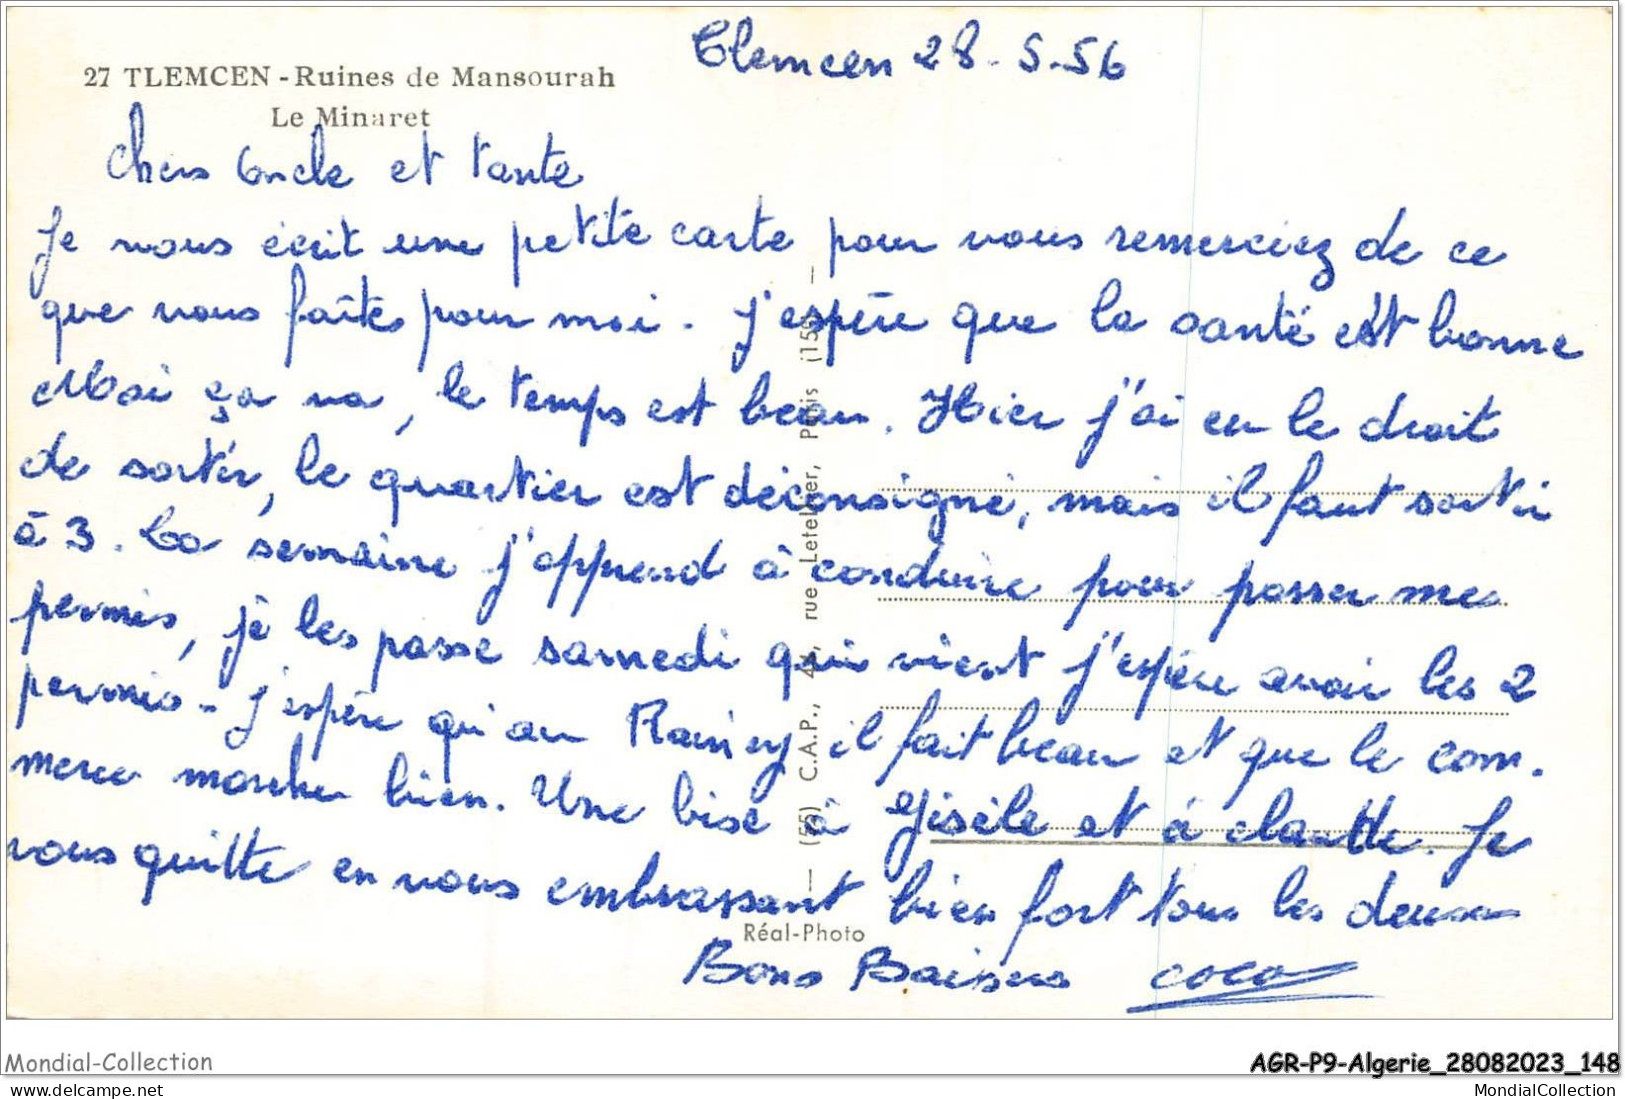 Tlemcen 28-5-56
27 TLEMCEN - Ruines de Mansourah
Le Minaret
Chers Oncle et tante
Je vous écrit une petite carte pour vous remerciez de ce
que vous faîtes pour moi. J'espère que la santé est bonne
Moi ça va, le temps est beau. Hier j'ai eu le droit
de sortir, le quartier est déconsigné, mais il faut sortir
à 3. La semaine j'apprend à conduire pour passer mes
permis, je les passe samedi qui vient j'espère avoir les 2
permis - j'espère qu'au Raincy il fait beau et que le com.
merce marche bien. Une bise à Gisèle et à Claude. Je
vous quitte en vous embrassant bien fort tous les deux
Bons Baisers coco
— (55) C.A.P., 44, rue Letellier, Paris (15e) —
Réal-Photo
Mondial-Collection
AGR-P9-Algerie_28082023_148
www.delcampe.net
MondialCollection